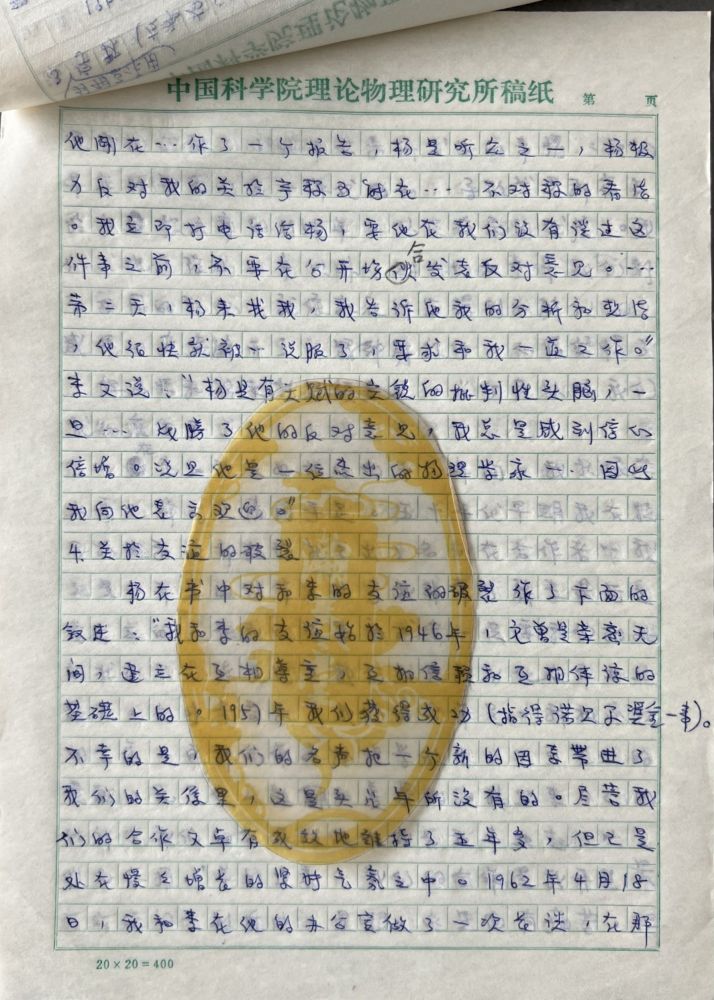 中国科学院理论物理研究所稿纸 第 页
他刚在…作了一个报告，杨是听众之一，杨极
力反对我的关於宇称
。我立即打电话给杨，要他在我们没有谈过这
件事之前，不要在公开场合发表反对意见。…
第二天，杨来找我，我告诉他我的分析和
，他很快就被…说服了，要求和我一道工作。”
李又说：“杨具有天赋的尖锐的批判性头脑，一
旦…战胜了他的反对意见，我总是感到信心
倍增。况且他是一位杰出的物理学家…因此
我向他表示欢迎。”
4.关於友谊的破裂
杨在书中对和李的友谊的破裂作了下面的
叙述：“我和李的友谊始於1946年，它曾是亲密无
间，建立在互相尊重，互相信赖和互相体谅的
基础上的。1957年我们获得成功（指得诺贝尔奖金一事）。
不幸的是，我们的名声把一个新的因素带进了
我们的关系里，这是头几年所没有的。尽管我
们的合作又卓有成效地维持了五年多，但已是
处在慢慢增长的紧张气氛之中。1962年4月18
日，我和李在他的办公室做了一次长谈，在那
20×20=400